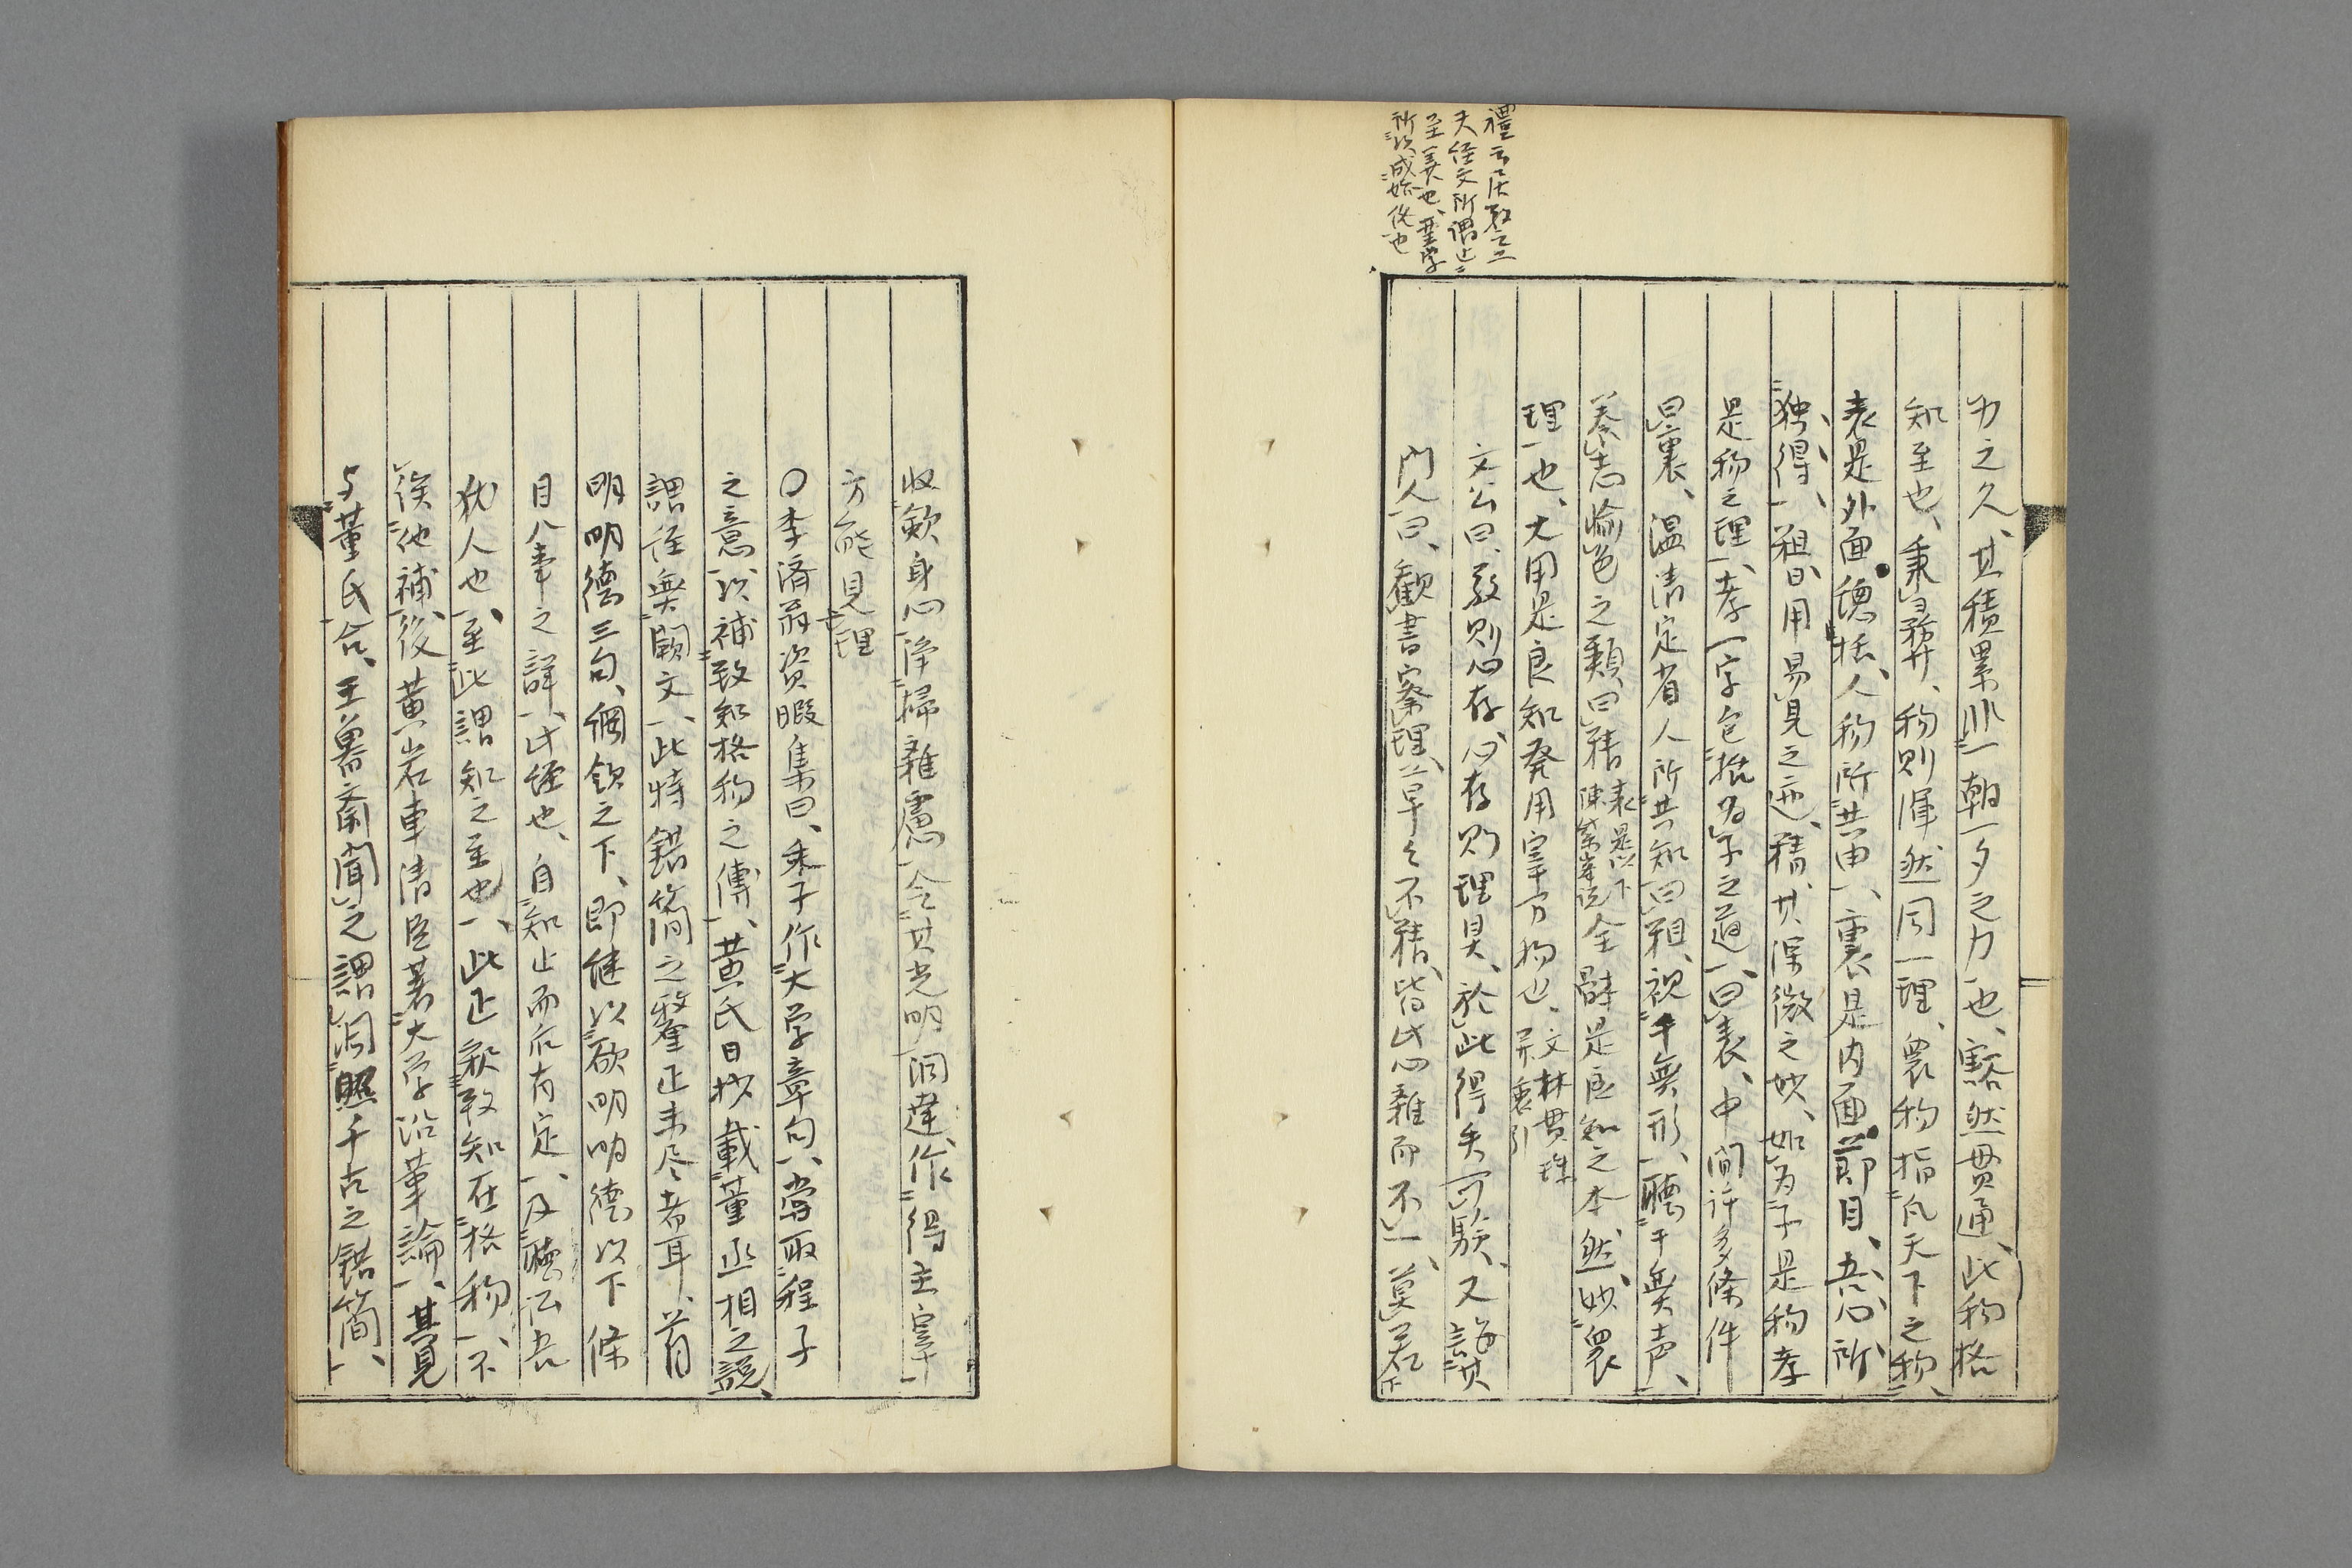 禮云居敬立
夫経文所謂止
至美也、聖学
所以成始終也
力之久、其積累非一朝一夕之力也、豁然貫通、此物格
知至也、秉彛、物則渾然同一理、衆物指凡天下之物、
表是外面総括、人物所共由、裏是内面節目、吾心所
独得、粗、日用易見之迹、精、其深微之妙、如為子是物孝
是物之理、孝一字包括為子之道、曰表、中間許多條件
曰裏、温凊定省人所共知曰粗、視于無形、聴于無声、
養志愉色之類曰精 表是以下 陳紫峯説 全体是良知之本然、妙衆
理也、大用是良知発用宰万物也、 文林貫珠 異裏引
文公曰、敬則心存、心存則理具、於此得失可験、又語其
門人曰、観書察理、草々不精、皆此心雜而不一、莫若
収歛身心、浄掃雜慮、令其光明洞達、作得主宰
方能見理
〇李済翁資暇集曰、朱子作大学章句、當取程子
之意、以補致知格物之傳、黄氏日抄載董丞相之説、
謂経無闕文、此特錯簡之釐正未尽者耳、首
明明德三句、綱領之下、即継以欲明明德以下條
目八事之詳、此経也、自知止而后有定、及聴訟吾
猶人也、至此謂知之至也、此正釈致知在格物、不
俟他補、後黄岩車清臣著大学沿革論、其見
与董氏合、王魯斎聞之謂洞照千古之錯簡、